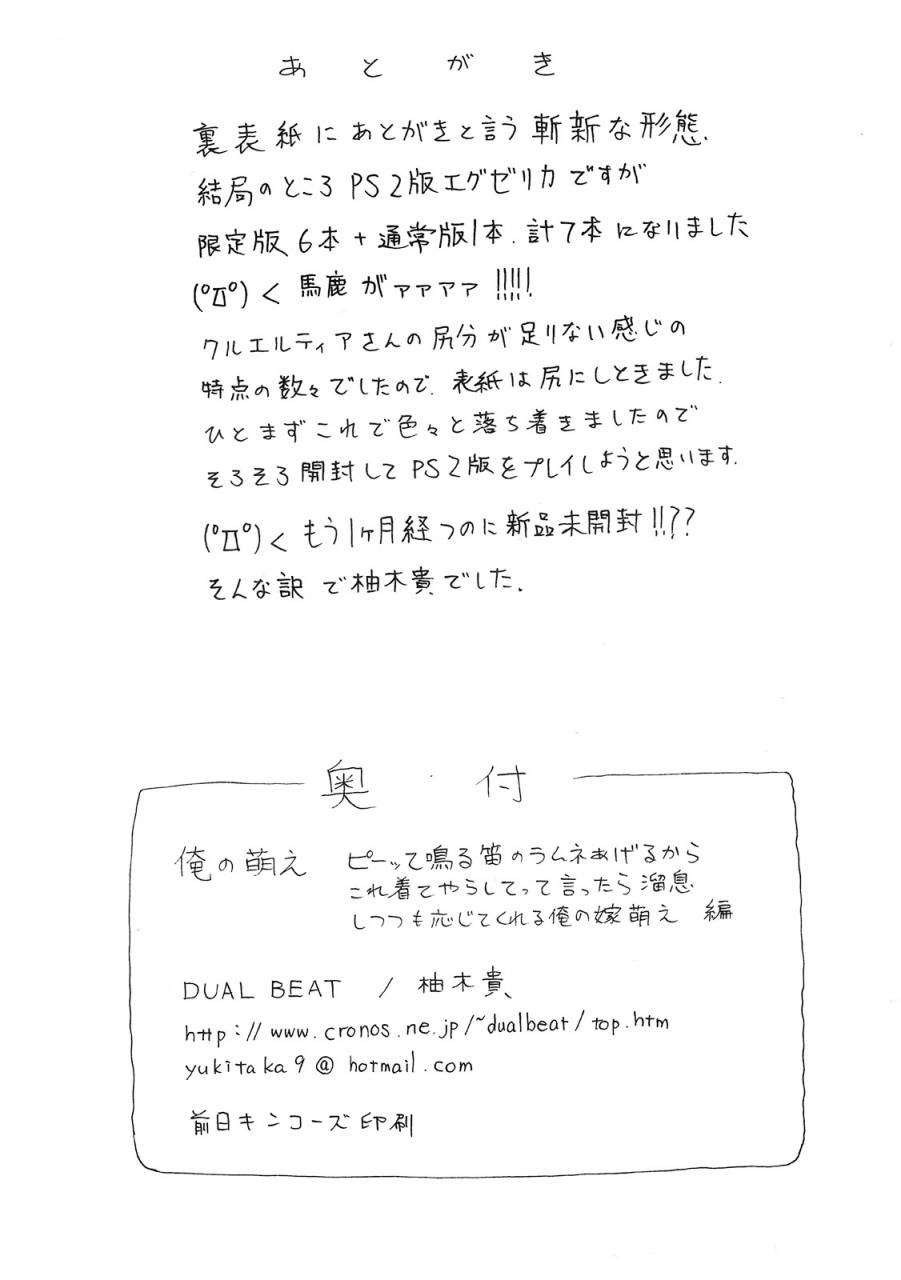 あとがき
裏表紙にあとがきと言う斬新な形態.
結局のところ PS2版エグゼリカですが
限定版6本+通常版1本.計7本になりました
(ºДº)< 馬鹿がァァァァ!!!!!
クルエルティアさんの尻分が足りない感じの
特点の数々でしたので.表紙は尻にしときました.
ひとまずこれで色々と落ち着きましたので
そろそろ開封してPS2版をプレイしようと思います.
(ºДº)< もう1ヶ月経つのに新品未開封!!??
そんな訳で柚木貴でした.
奥付
俺の萌え ピーッて鳴る笛のラムネあげるから
これ着てやらしてって言ったら溜息
しつつも応じてくれる俺の嫁萌え 編
DUAL BEAT / 柚木貴
http://www.cronos.ne.jp/~dualbeat/top.htm
yukitaka9@hotmail.com
前日キンコーズ印刷